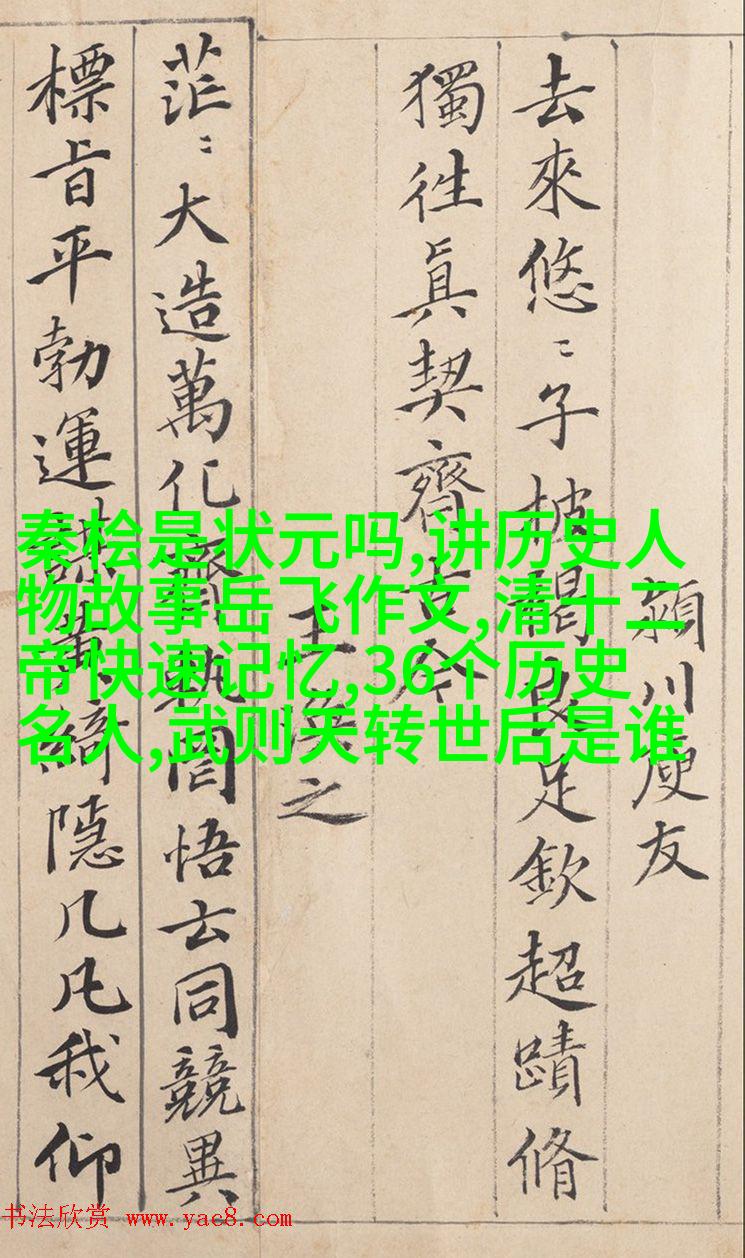 頴川庾友
去來悠〻子披褐良足欽超蹟脩
獨徃眞契齊古今
王渙之
茫〻大造萬化齊軌罔悟玄同競異
標旨平勃運謀黃綺隱几凡我仰
秦桧是状元吗,讲历史人
物故事岳飞作文,清十二
帝快速记忆,36个历史
名人,武则天转世后是谁
书法欣赏 www.yac8.com